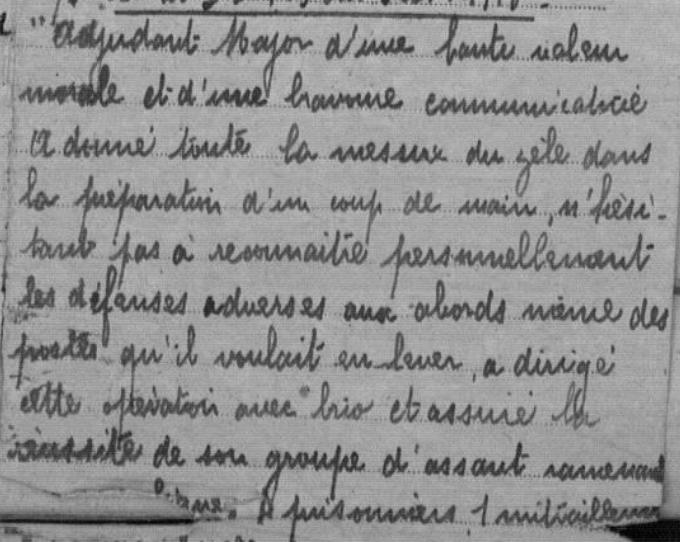 "Adjudant Major d'une haute valeur
morale et d'une bravoure communicative
A donné toute la mesure du zèle dans
la préparation d'un coup de main, n'hési-
tant pas à reconnaitre personnellement
les défenses adverses aux abords même des
postes qu'il voulait enlever, a dirigé
cette opération avec brio et assuré la
réussite de son groupe d'assaut ramenant
prisonniers, 1 mitrailleuse